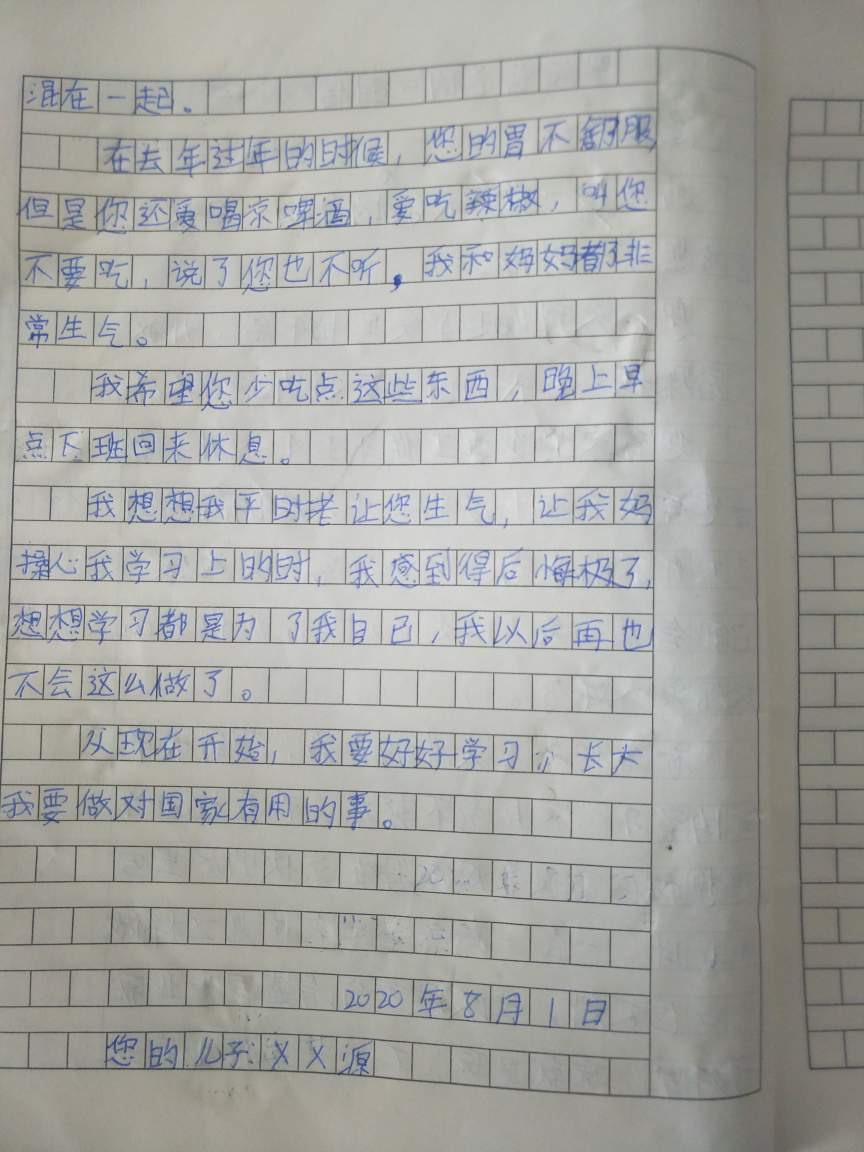 混在一起。
在去年过年的时候，您的胃不舒服
但是你还爱喝凉啤酒，爱吃辣椒，叫您
不要吃，说了您也不听，我和妈妈都非
常生气。
我希望您少吃点这些东西，晚上早
点下班回来休息。
我想想我平时老让您生气，让我妈
操心我学习上的时，我感到得后悔极了，
想想学习都是为了我自己，我以后再也
不会这么做了。
从现在开始，我要好好学习，长大
我要做对国家有用的事。
2020年8月1日
您的儿子：乂乂源